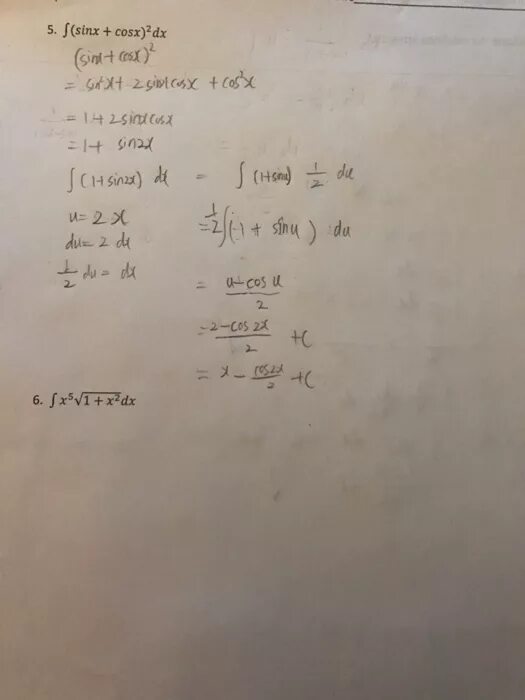 5. ∫(sinx + cosx)²dx
(sinx+cosx)²
= sin²x+ 2sinxcosx + cos²x
= 1+ 2sinxcosx
= 1+ sin2x
∫(1+sin2x) dx = ∫(1+sinu) 1/2 du
u= 2x
= 1/2∫(1 + sinu) du
du= 2 dx
1/2 du = dx
= u-cos u / 2
= 2-cos 2x / 2 +C
= x - cos2x / 2 +C
6. ∫x⁵√1 + x²dx